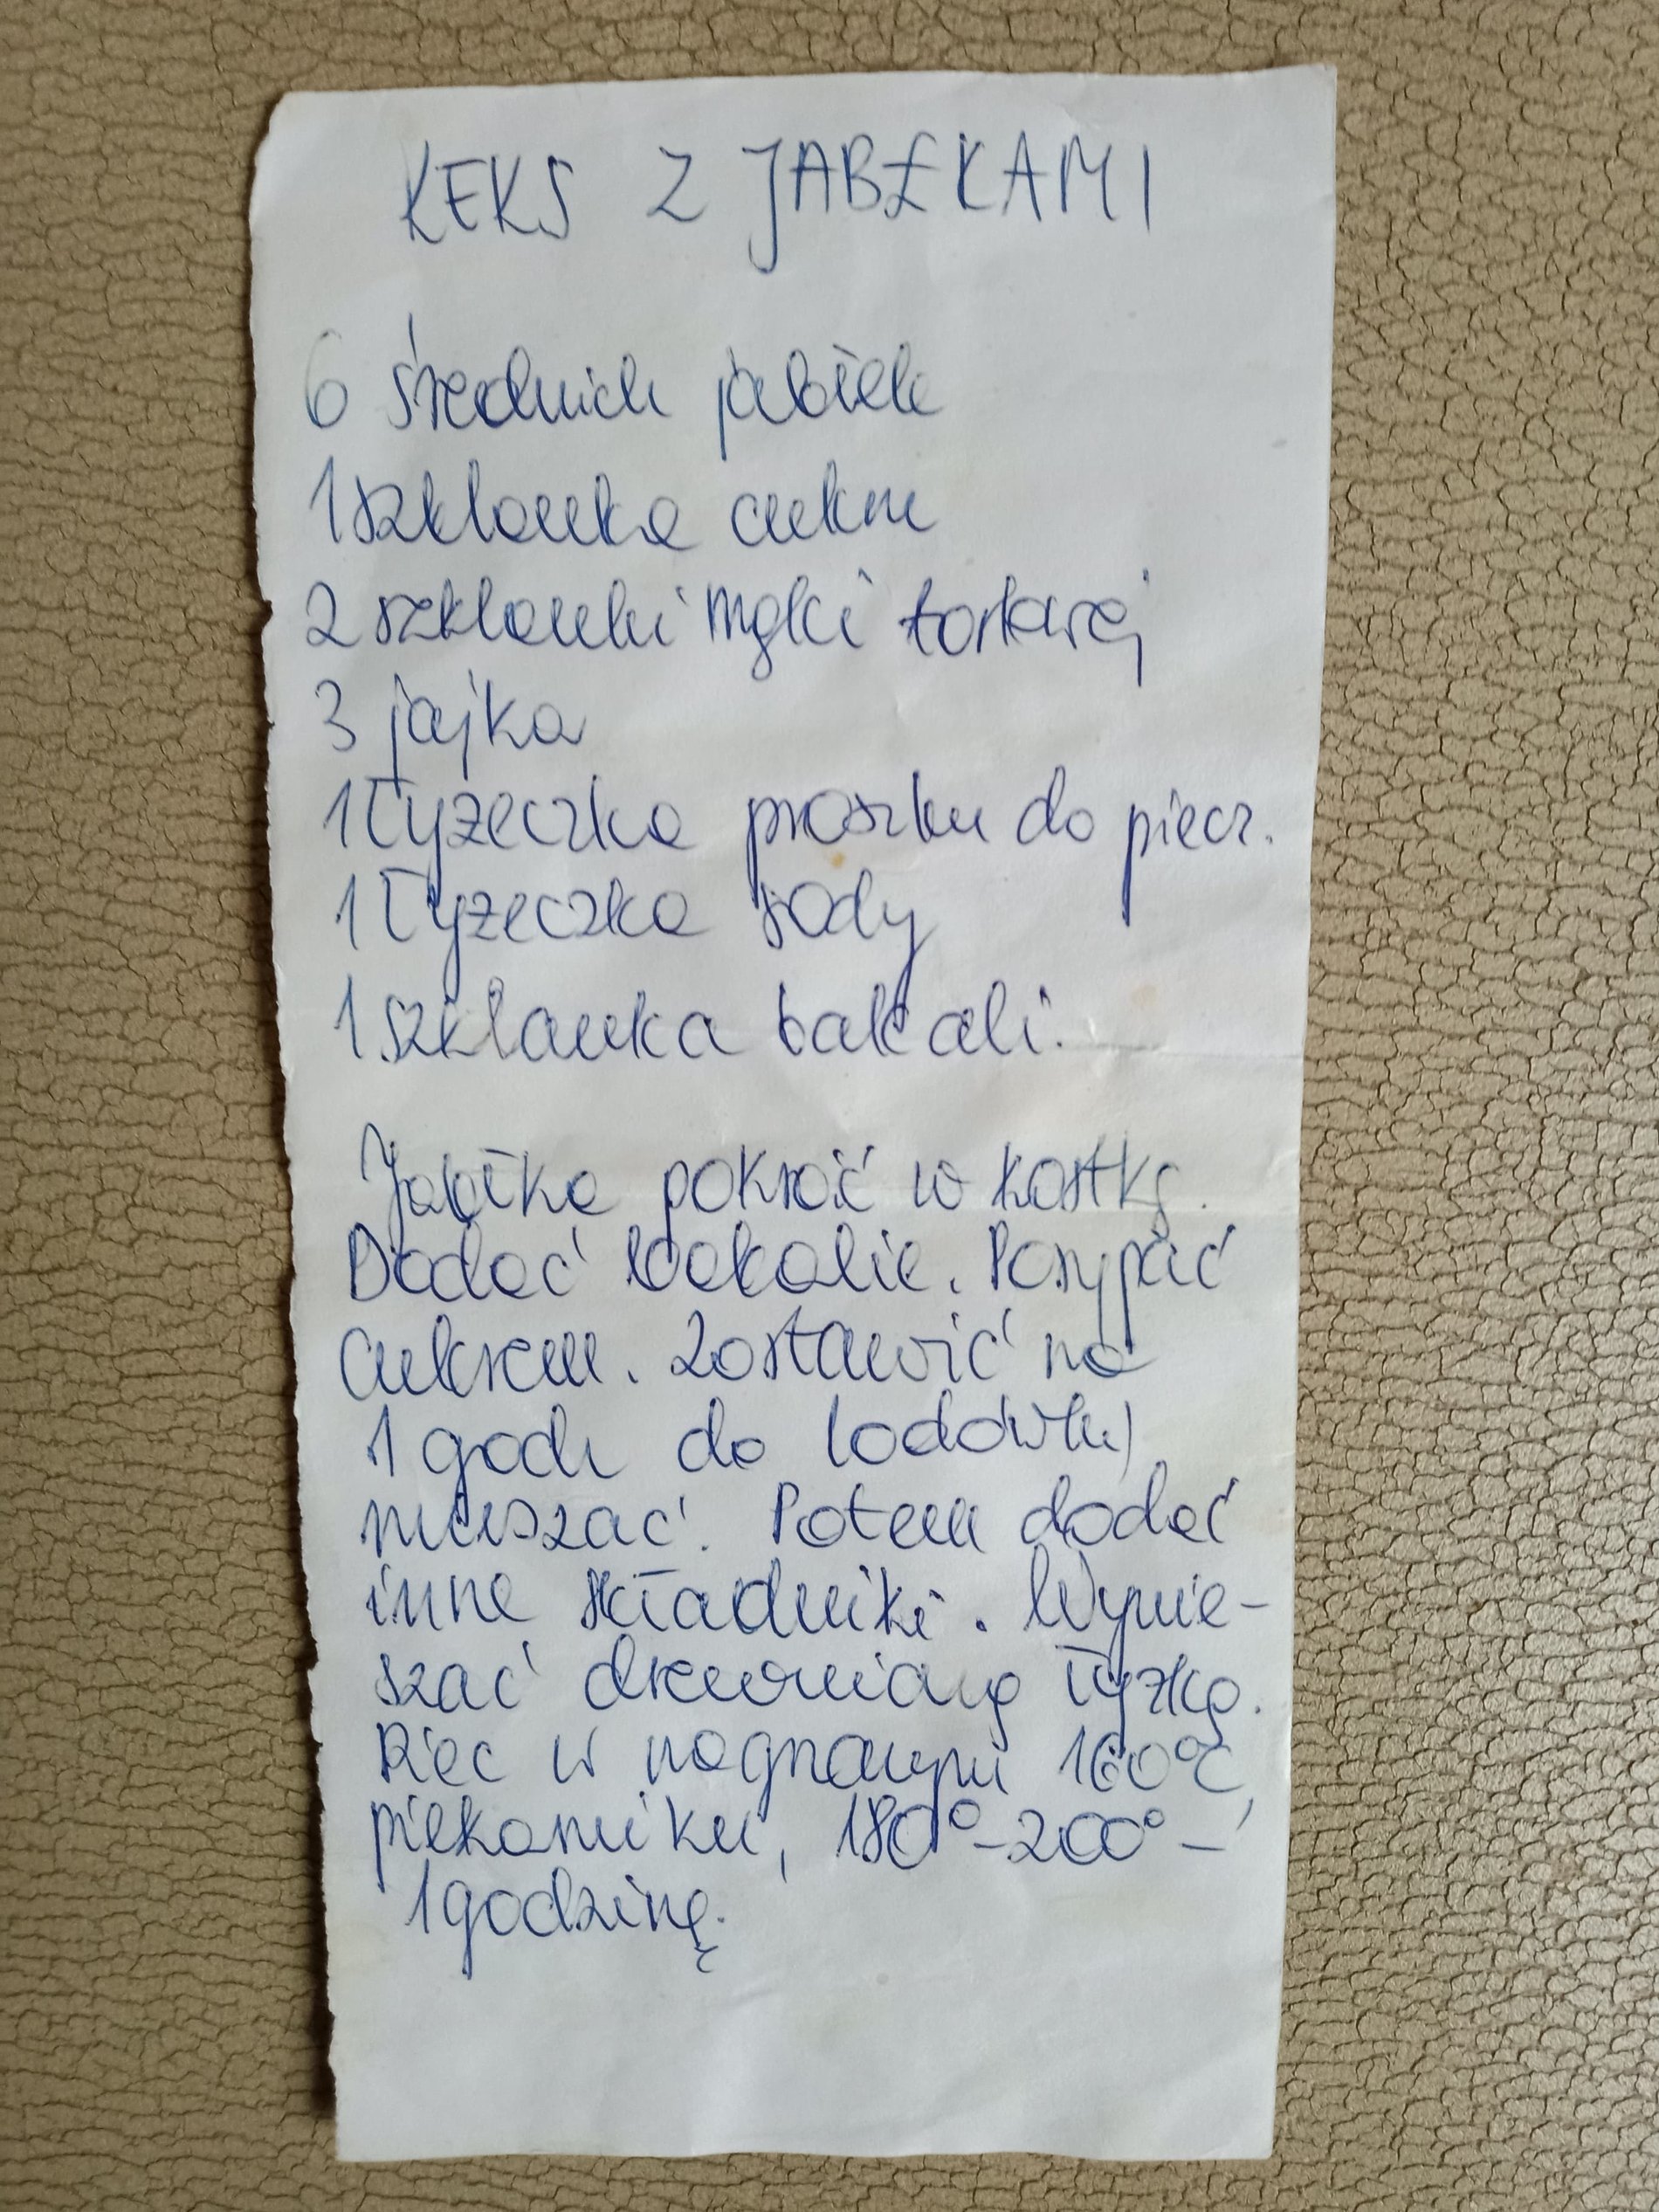 KEKS Z JABŁKAMI
6 średnich jabłek
1 szklanka cukru
2 szklanki mąki tortowej
3 jajka
1 łyżeczka proszku do piecz.
1 łyżeczka sody
1 szklanka bakali.
Jabłka pokroić w kostkę.
Dodać bakalie. Posypać
cukrem. Zostawić na
1 godz do lodówki
mieszać. Potem dodać
inne składniki. Wymie-
szać drewnianą łyżką.
Piec w nagrzanym 160°C,
piekarniku, 180°-200° -
1 godzinę.